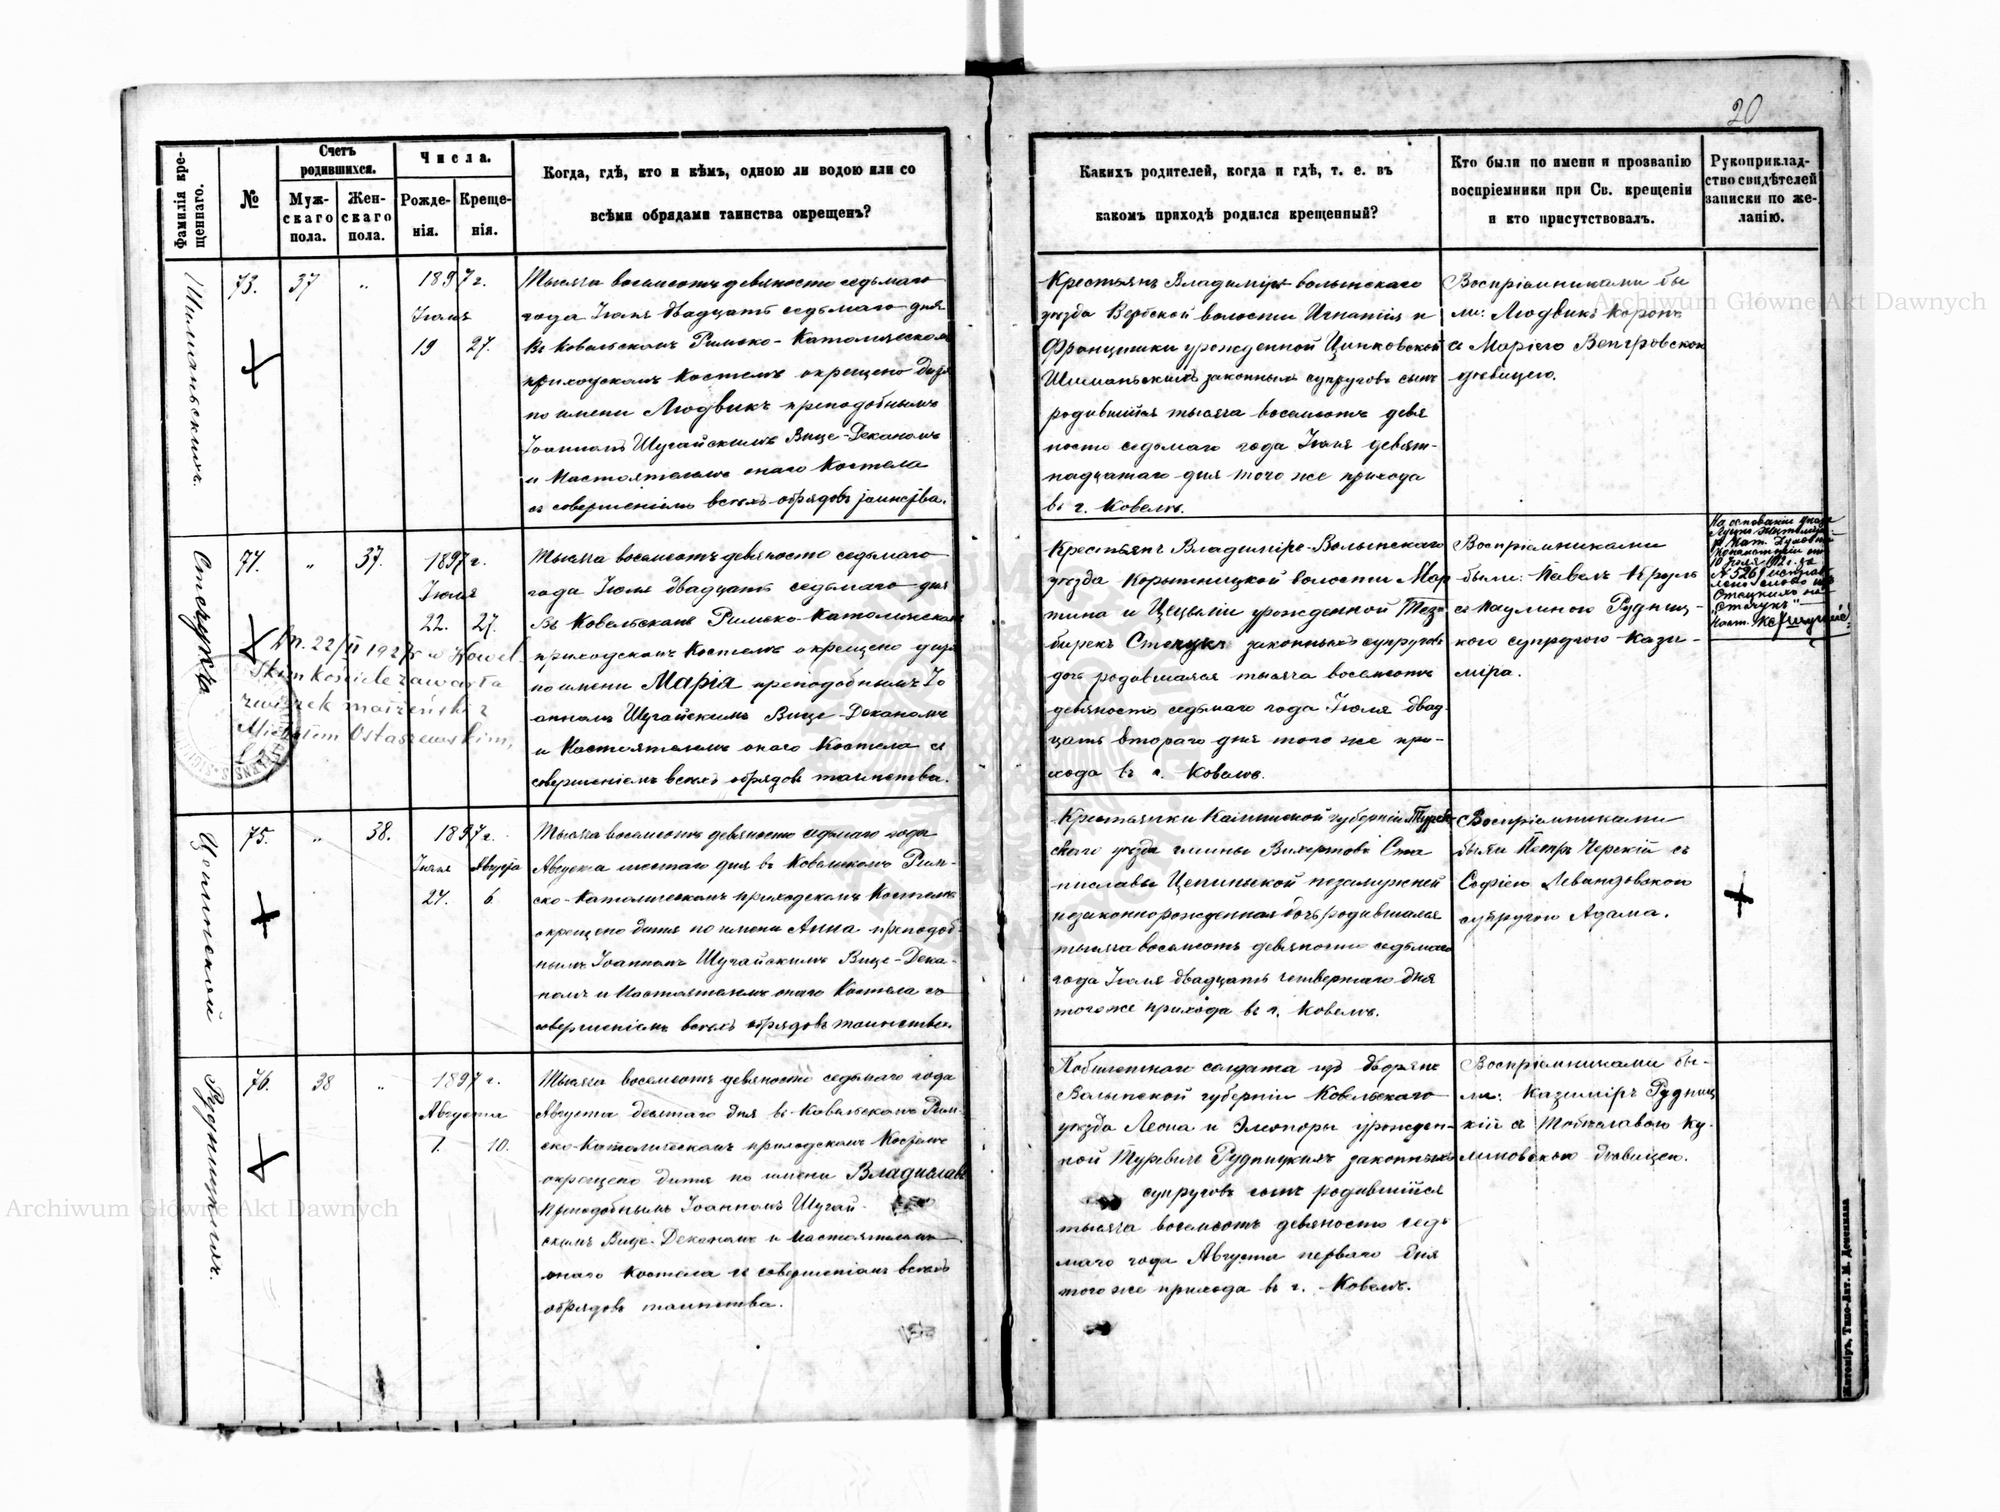 20
Фамилія кре-
щеннаго.
№
Счетъ
родившихся.
Муж-
скаго
пола.
Жен-
скаго
пола.
Числа.
Рожде-
нія.
Креще-
нія.
Когда, гдѣ, кто и кѣмъ, одною ли водою или со
всѣми обрядами таинства окрещенъ?
Какихъ родителей, когда и гдѣ, т. е. въ
какомъ приходѣ родился крещенный?
Кто были по имени и прозванію
воспріемники при Св. крещеніи
и кто присутствовалъ.
Рукоприклад-
ство свидѣтелей
записки по же-
ланію.
Шиманьскихъ.
73. 37 „ 1897 г.
Іюля
19 27.
Тысяча восемсотъ девяносто седьмаго
года Іюля двадцать седьмаго дня
въ Ковельскомъ Римско-Католическом
приходскомъ Костелѣ окрещено дитя
по имени Людвикъ преподобнымъ
Іоанномъ Шугайскимъ Вице-Деканомъ
и Настоятелемъ онаго Костела
съ совершеніемъ всѣхъ обрядовъ таинства.
Крестьянъ Владиміръ волынскаго
уѣзда Вербской волости Игнатія и
Францишки урожденной Цинковской
Шиманьскихъ законныхъ супруговъ сынъ
родившійся тысяча восемсотъ девя
носто седьмаго года Іюля девят-
надцатаго дня того же прихода
въ г. Ковелѣ.
Воспріемниками бы
ли: Людвикъ Коронъ
съ Маріею Венгровскою
дѣвицею.
Стечукъ
74. „ 37. 1897 г.
Іюля
22. 27.
Dn. 22/II 1927 r. w Kowel
skim kościele zawarła
związek małżeński z
Michałem Ostaszewskim,
Тысяча восемсотъ девяносто седьмаго
года Іюля двадцать седьмаго дня
въ Ковельскомъ Римско-Католическомъ
приходскомъ Костелѣ окрещено дитя
по имени Марія преподобнымъ Іо
анномъ Шугайскимъ Вице-Деканомъ
и Настоятелемъ онаго Костела съ
совершеніемъ всѣхъ обрядовъ таинства.
Крестьянъ Владиміръ-Волынскаго
уѣзда Корытницкой волости Мар
тина и Цециліи урожденной
законныхъ супруговъ
дочь родившаяся тысяча восемсотъ
девяносто седьмаго года Іюля двад-
цать втораго дня того же при-
хода въ г. Ковелѣ.
Воспріемниками
были: Павелъ Кроль
съ Паулиною Рудниц-
кого супругою Кази-
міра.
На основаніи указа
Духовной
Консисторіи отъ
10 Іюля 1912 г. за
№ 5269 исправ
лено слово изъ
на
„Стечукъ"
Цеппнской
75. „ 38. 1897 г.
Іюля Августа
24. 6
Тысяча восемсотъ девяносто седьмаго года
Августа шестаго дня въ Ковельскомъ Рим-
ско-Католическомъ приходскомъ Костелѣ
окрещено дитя по имени Анна преподоб-
нымъ Іоанномъ Шугайскимъ Вице-Дека-
номъ и Настоятелемъ онаго Костела съ
совершеніемъ всѣхъ обрядовъ таинства.
Крестьянки Калишской губерніи Турек-
скаго уѣзда гмины Вихертовъ Ста
ниславы Цепиньской незамужней
незаконнорожденная дочь родившаяся
тысяча восемсотъ девяносто седьмаго
года Іюля двадцать четвертаго дня
того же прихода въ г. Ковелѣ.
Воспріемниками
были Петръ Черскій съ
Софіею Левандовскою
супругою Адама.
Рудницкихъ.
76. 38 „ 1897 г.
Августа
1. 10.
Тысяча восемсотъ девяносто седьмаго года
Августа десятаго дня въ Ковельскомъ Рим-
ско-Католическомъ приходскомъ Костелѣ
окрещено дитя по имени Владиславъ
преподобнымъ Іоанномъ Шугай-
скимъ Вице-Деканомъ и Настоятелемъ
онаго Костела съ совершеніемъ всѣхъ
обрядовъ таинства.
солдата изъ дворянъ
Волынской губерніи Ковельскаго
уѣзда Леона и Элеоноры урожден-
ной Туревичъ Рудницкихъ законныхъ
супруговъ сынъ родившійся
тысяча восемсотъ девяносто седь
маго года Августа перваго дня
того же прихода въ г. Ковелѣ.
Воспріемниками бы-
ли: Казиміръ Рудниц
кій съ Ку-
линовскою дѣвицею.
Житоміръ, Типо-Лит. М. Дененмана
Archiwum Główne Akt Dawnych
Archiwum Główne Akt Dawnych